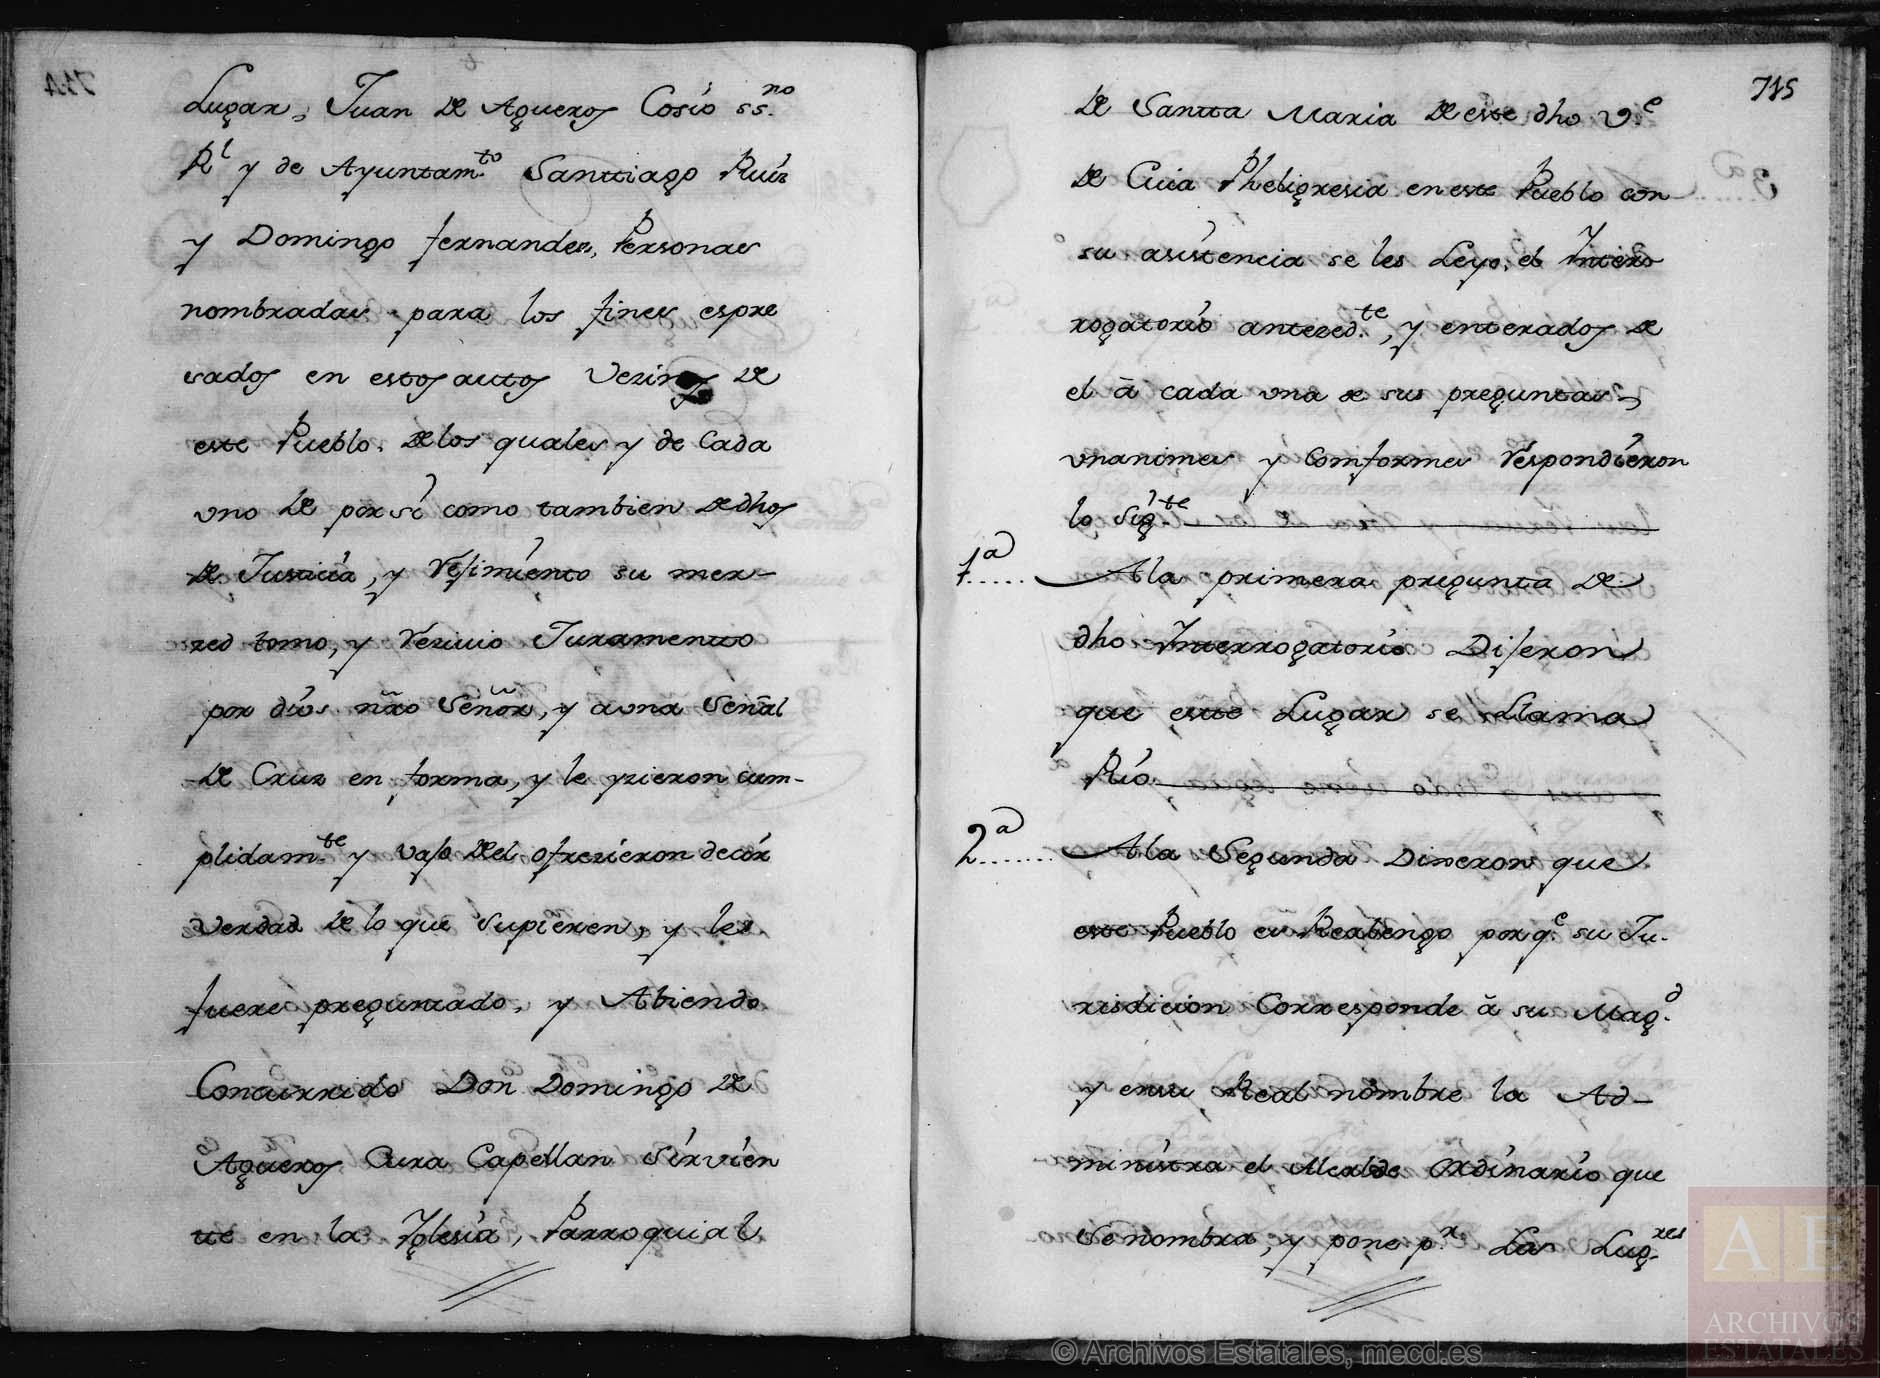 Lugar, Juan de Agueros Cosío ss.no
Rl y de Ayuntam.to Santtiago Ruiz
y Domingo fernandez, Personas
nombradas para los fines espre
sados en estos autos Vezinos de
este Pueblo. de los quales y de Cada
vno de por sí como tambien de dhos
de Justicia, y Rejimiento su mer-
zed tomo, y Rezivio Juramentto
por dios nr̃o Señor, y a vna Señal
de Cruz en forma, y le yzieron cum-
plidam.te y vajo del ofrezieron decir
verdad de lo que supieren, y les
fuere preguntado, y Abiendo
Concurrido Don Domingo de
Agueros Cura Capellan Sirvien
tte en la Iglesia, Parroquial
715
de Santta Maria de este dho
de Cuia Pheligresia en este Pueblo con
su asistencia se les Leyo, el Inter̃o
rogatorio antezed.te, y enterados de
el â cada vna de sus preguntas,
vnanimes y Comformes Respondieron
lo Sig.te
1a..... A la primera pregunta de
dho Interrogatorio Dijeron
que este Lugar se Llama
Río
2a....... A la Segunda Dixeron que
este Pueblo es Realengo por q.e su Ju-
risdicion Corresponde â su Mag.d
y en su Real nombre la Ad-
ministra el Alcalde ordinario que
se nombra, y pone p.r Las Lug.res
© Archivos Estatales, mecd.es
AE
ARCHIVOS
ESTATALES